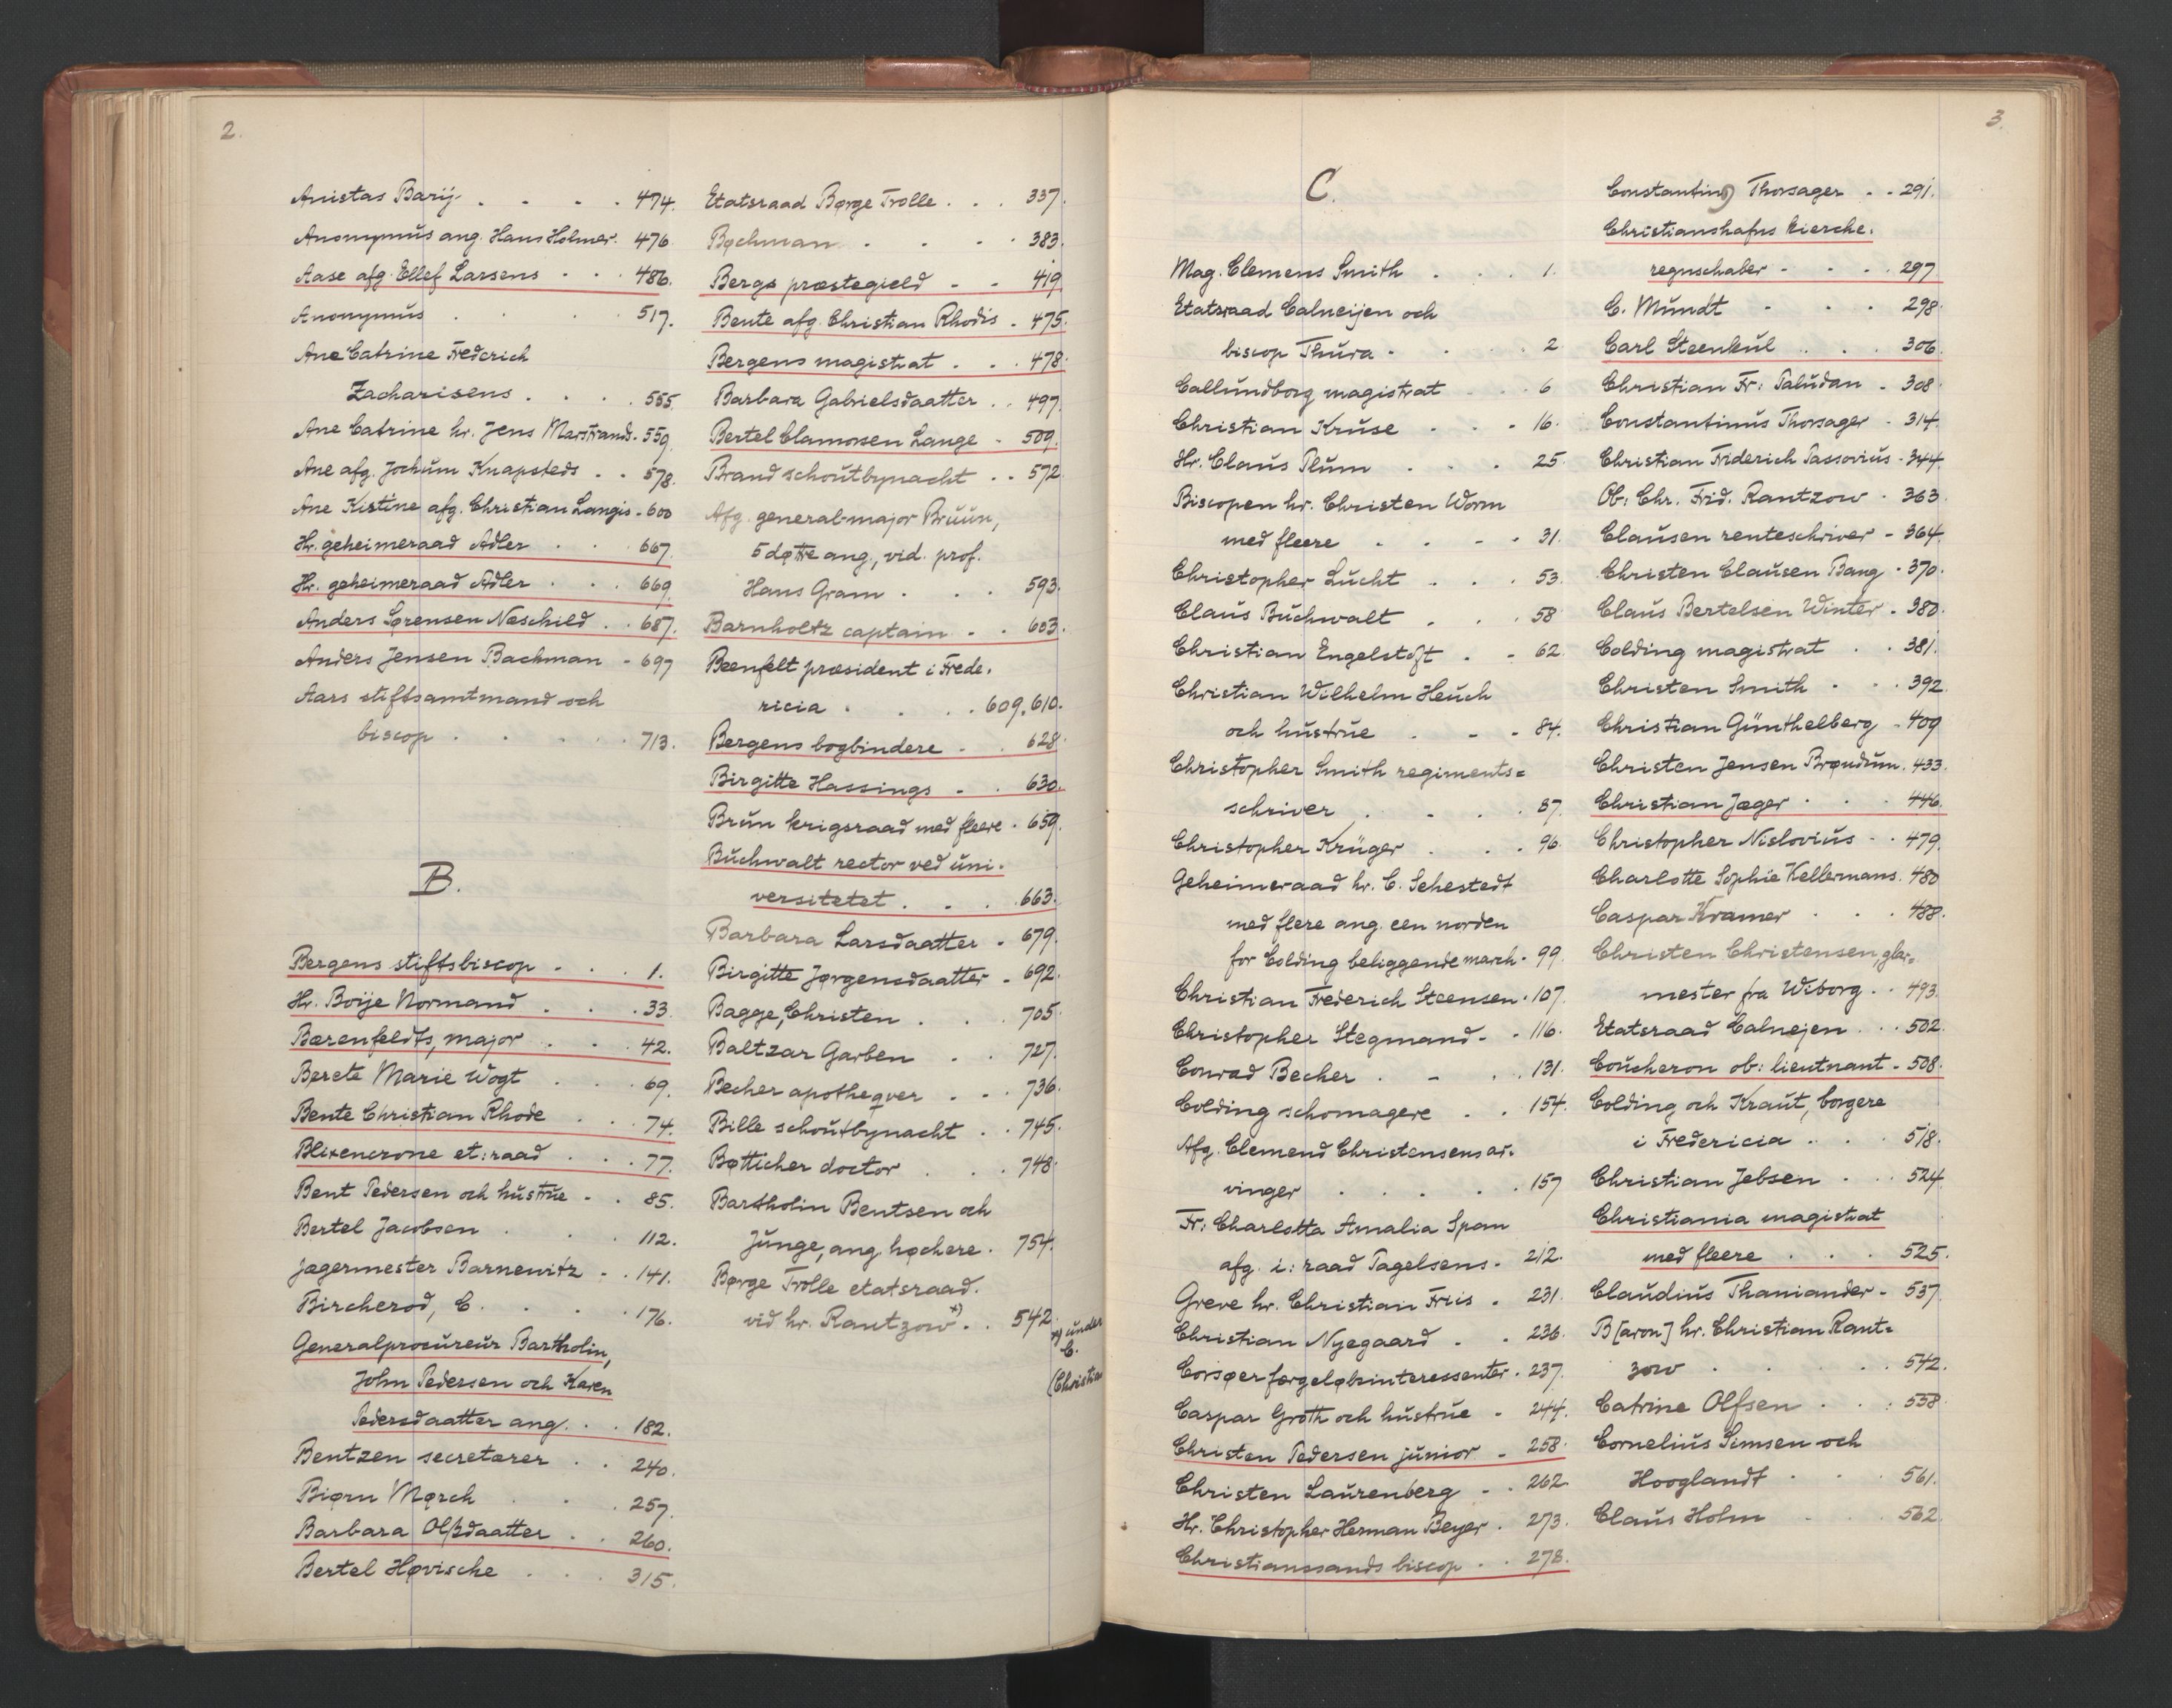 2.
Anistas Barij . . . . 474.
Anonymus ang. Hans Holmer. 476
Aase afg. Ellef Larsens - . . 486.
Anonymus . . . 517.
Ane Catrine Frederich
Zacharisens . . . . 555.
Ane Catrine hr. Jens Marstrands. 559.
Ane afg. Jochum Knapsteds . . 578.
Ane Kistine afg. Christian Langis - 600
Hr. geheimeraad Adler . . . 667.
Hr. geheimeraad Adler . . . 669.
Anders Sørensen Næschild . . 687.
Anders Jensen Bachman - 697
Aars stiftsamtmand och
biscop . . . . . 713.
B.
Bergens stiftsbiscop - . . 1.
Hr. Boije Normand . . . 33.
Bærenfeldts, major . . . 42.
Berete Marie Wogt . . . 69.
Bente Christian Rhode . . . 74.
Blixencrone et: raad . . . 77.
Bent Pedersen och hustrue - . 85.
Bertel Jacobsen . . . 112.
Jægermester Barnewitz - . 141.
Bircherod, C. . . . 176.
Generalprocureur Bartholin,
John Pedersen och Karen
Pedersdaatter ang. . . 182.
Bentzen secretærer . . 240.
Biørn Mørch . . . 257.
Barbara Olßdaatter . . 260.
Bertel Høvische . . . 315.
Etatsraad Børge Trolle . . . 337.
Bøchman . . . . 383.
Bergs præstegield - - 419.
Bente afg. Christian Rhodis . 475.
Bergens magistrat . . . 478.
Barbara Gabrielsdaatter . . 497.
Bertel Clamorsen Lange - 509.
Brand schoutbynacht . . 572
Afg. general-major Bruun,
5 døttre ang., vid. prof.
Hans Gram . . . 593.
Barnholtz captain - . 603.
Beenfelt præsident i Frede.
ricia . . . . 609. 610.
Bergens bogbindere - . 628.
Birgitte Hassings - . 630.
Brun krigsraad med fleere . 659.
Buchwalt rector ved uni.
versitetet . . . 663.
Barbara Larsdaatter . 679.
Birgitte Jørgensdaatter - 692.
Bagge, Christen . . . 705.
Baltzar Garben . . 727.
Becher apotheqver . . . 736.
Bille schoutbynacht . . 745.
Bøtticher doctor . . . 748.
Bartholin Bentsen och
Junge, ang. høchere . 754.
Børge Trolle etatsraad.
vid hr. Rantzow *) . . 542.
*) under
C.
(Christian
3.
C.
Mag. Clemens Smith . . . 1.
Etatsraad Calneijen och
biscop Thura - . . . 2
Callundborg magistrat . . 6
Christian Kruse . . . 16.
Hr. Claus Plum . . . 25.
Biscopen hr. Christen Worm
med fleere . . . . 31.
Christopher Lucht . . . 53.
Claus Buchwalt . . . 58
Christian Engelstoft . - 62.
Christian Wilhelm Heuch
och hustrue . . - 84.
Christopher Smith regiments=
schriver . . . . 87.
Christopher Krüger . . . 96.
Geheimeraad hr. C. Sehestedt
med flere ang. een norden
for Colding beliggende march - 99.
Christian Frederich Steensen . 107.
Christopher Stegmand - . 116.
Conrad Becher . - . . 131.
Colding schomagere . . 154.
Afg. Clemend Christensens ar.
vinger . . . . . 157
Fr: Charlotta Amalia Span
afg. i: raad Pagelsens . 212.
Greve hr. Christian Friis . 231.
Christian Nyegaard . . 236.
Corsøer færgeløbsinteressenter . 237.
Caspar Groth och hustrue - 244.
Christen Pedersen junior - 258.
Christen Laurenberg . . 262.
Hr. Christopher Herman Beyer . 273.
Christianssands biscop . . 278.
Constantin(9) Thorsager . . 291.
Christianshafns kierche.
regnschaber - . . . 297
C. Mundt . . . 298.
Carl Steenkul . . . 306.
Christian Fr: Paludan - 308.
Constantinus Thorsager . 314.
Christian Friderich Passovius . 344.
Ob: Chr. Frid. Rantzow . 363.
Clausen renteschriver - 364.
Christen Clausen Bang . 370.
Claus Bertelsen Winter . 380.
Colding magistrat . . 381.
Christen Smith . . . 392.
Christian Günthelberg - 409
Christen Jensen Brøndum. 433.
Christian Jæger . . . 446.
Christopher Nislovius . . 479.
Charlotte Sophie Kellermans. 480
Caspar Kramer . . . 488.
Christen Christensen, glar=
mester fra Wiborg . . 493.
Etatsraad Calnejen . . . 502.
Coucheron ob: lieutnant . 508.
Colding och Kraut, borgere
i Fredericia . . . 518.
Christian Jebsen . . . 524.
Christiania magistrat
med fleere . . . 525.
Claudius Thaniander - 537.
B[aron] hr. Christian Rant=
zow . . . . . 542.
Catrine Olfsen . . . 558.
Cornelius Simsen och
Hooglandt . . . 561.
Claus Holm . . . 562.